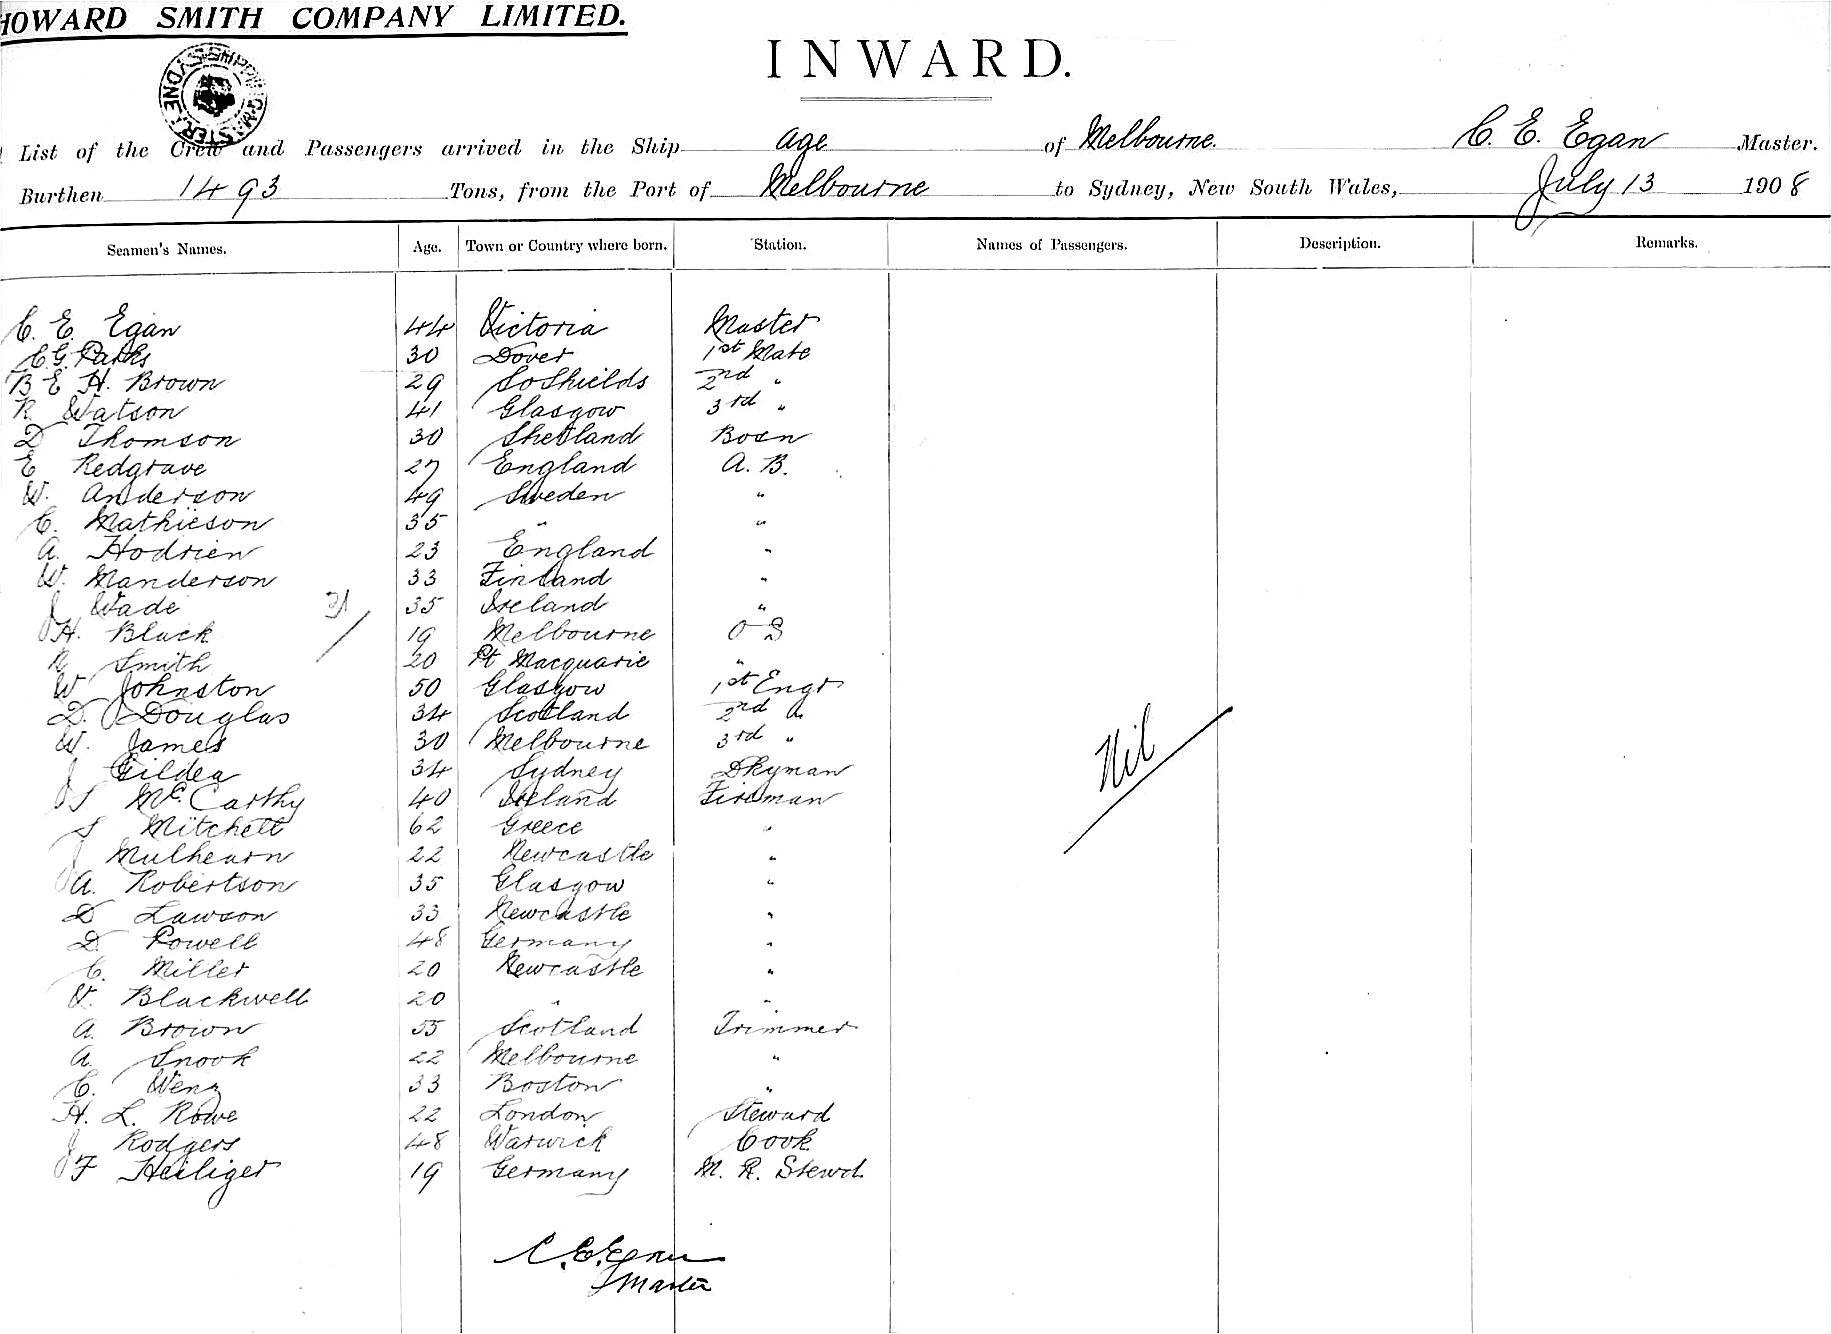 HOWARD SMITH COMPANY LIMITED.
INWARD.
SHIPPING MASTER SYDNEY
List of the Crew and Passengers arrived in the Ship Age of Melbourne. C. E. Egan Master.
Burthen 1493 Tons, from the Port of Melbourne to Sydney, New South Wales, July 13 1908
Seamen's Names. Age. Town or Country where born. Station. Names of Passengers. Description. Remarks.
C. E. Egan 44 Victoria Master
C. G. Parks 30 Dover 1st Mate
B E H. Brown 29 So Shields 2nd "
R Watson 41 Glasgow 3rd "
D Thomson 30 Shetland Bosn
E Redgrave 27 England A. B.
W. Anderson 49 Sweden "
C. Mathieson 35 " "
A. Hodrien 23 England "
W. Manderson 33 Finland "
J Wade 31 35 Ireland "
H. Black 19 Melbourne O S
R Smith 20 Pt Macquarie "
W Johnston 50 Glasgow 1st Engr
D. Douglas 34 Scotland 2nd "
W. James 30 Melbourne 3rd "
J Gildea 34 Sydney Dkyman
J McCarthy 40 Ireland Fireman
S Mitchell 62 Greece "
J Mulhearn 22 Newcastle "
A. Robertson 35 Glasgow "
D Lawson 33 Newcastle "
D Powell 48 Germany "
C. Miller 20 Newcastle "
V. Blackwell 20 " "
A. Brown 55 Scotland Trimmer
A. Snook 22 Melbourne "
C. Wenz 33 Boston "
H. L. Rowe 22 London Steward
J Rodgers 48 Warwick Cook
F Heiliger 19 Germany M. R. Stewd
Nil
C. E. Egan
Master